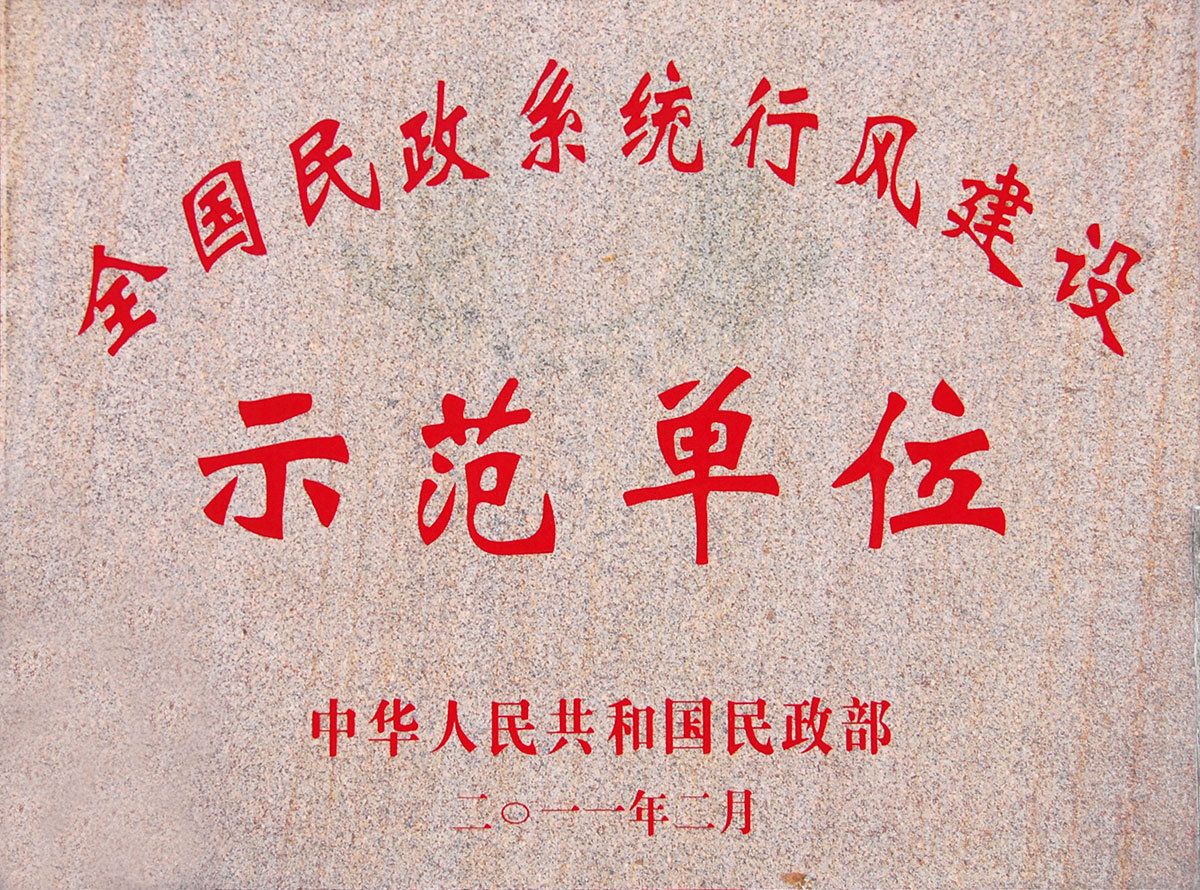 全国民政系统行风建设
示范单位
中华人民共和国民政部
二〇一一年二月